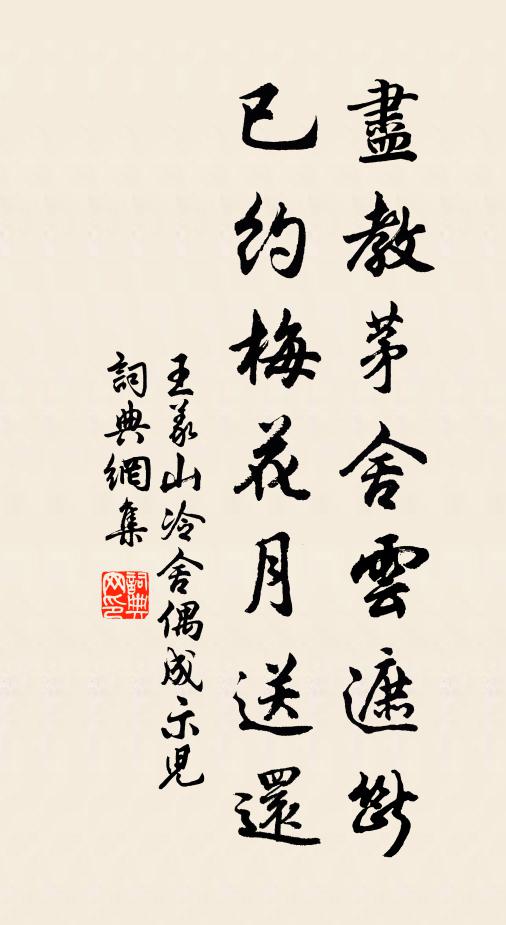 盡教茅舍雲遮斷
已約梅花月送還
王義山冷舍偶成示兒
詞典網集
詞典网印